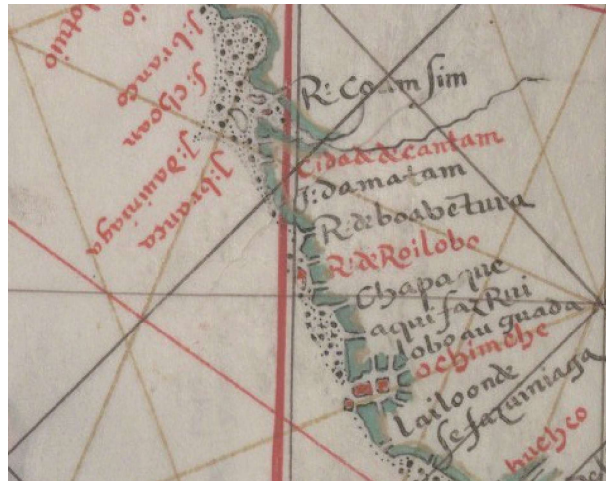 J: branco
f: choan
J: dauiniaga
J: branca
R: Coamsim
Cidad de cantam
J: damatam
R: de boabētura
R: de Roilobo
Chapa que
aqui faz Rui
lobo au guada
ochimche
lailo onde
se faz ueniaga
huchco